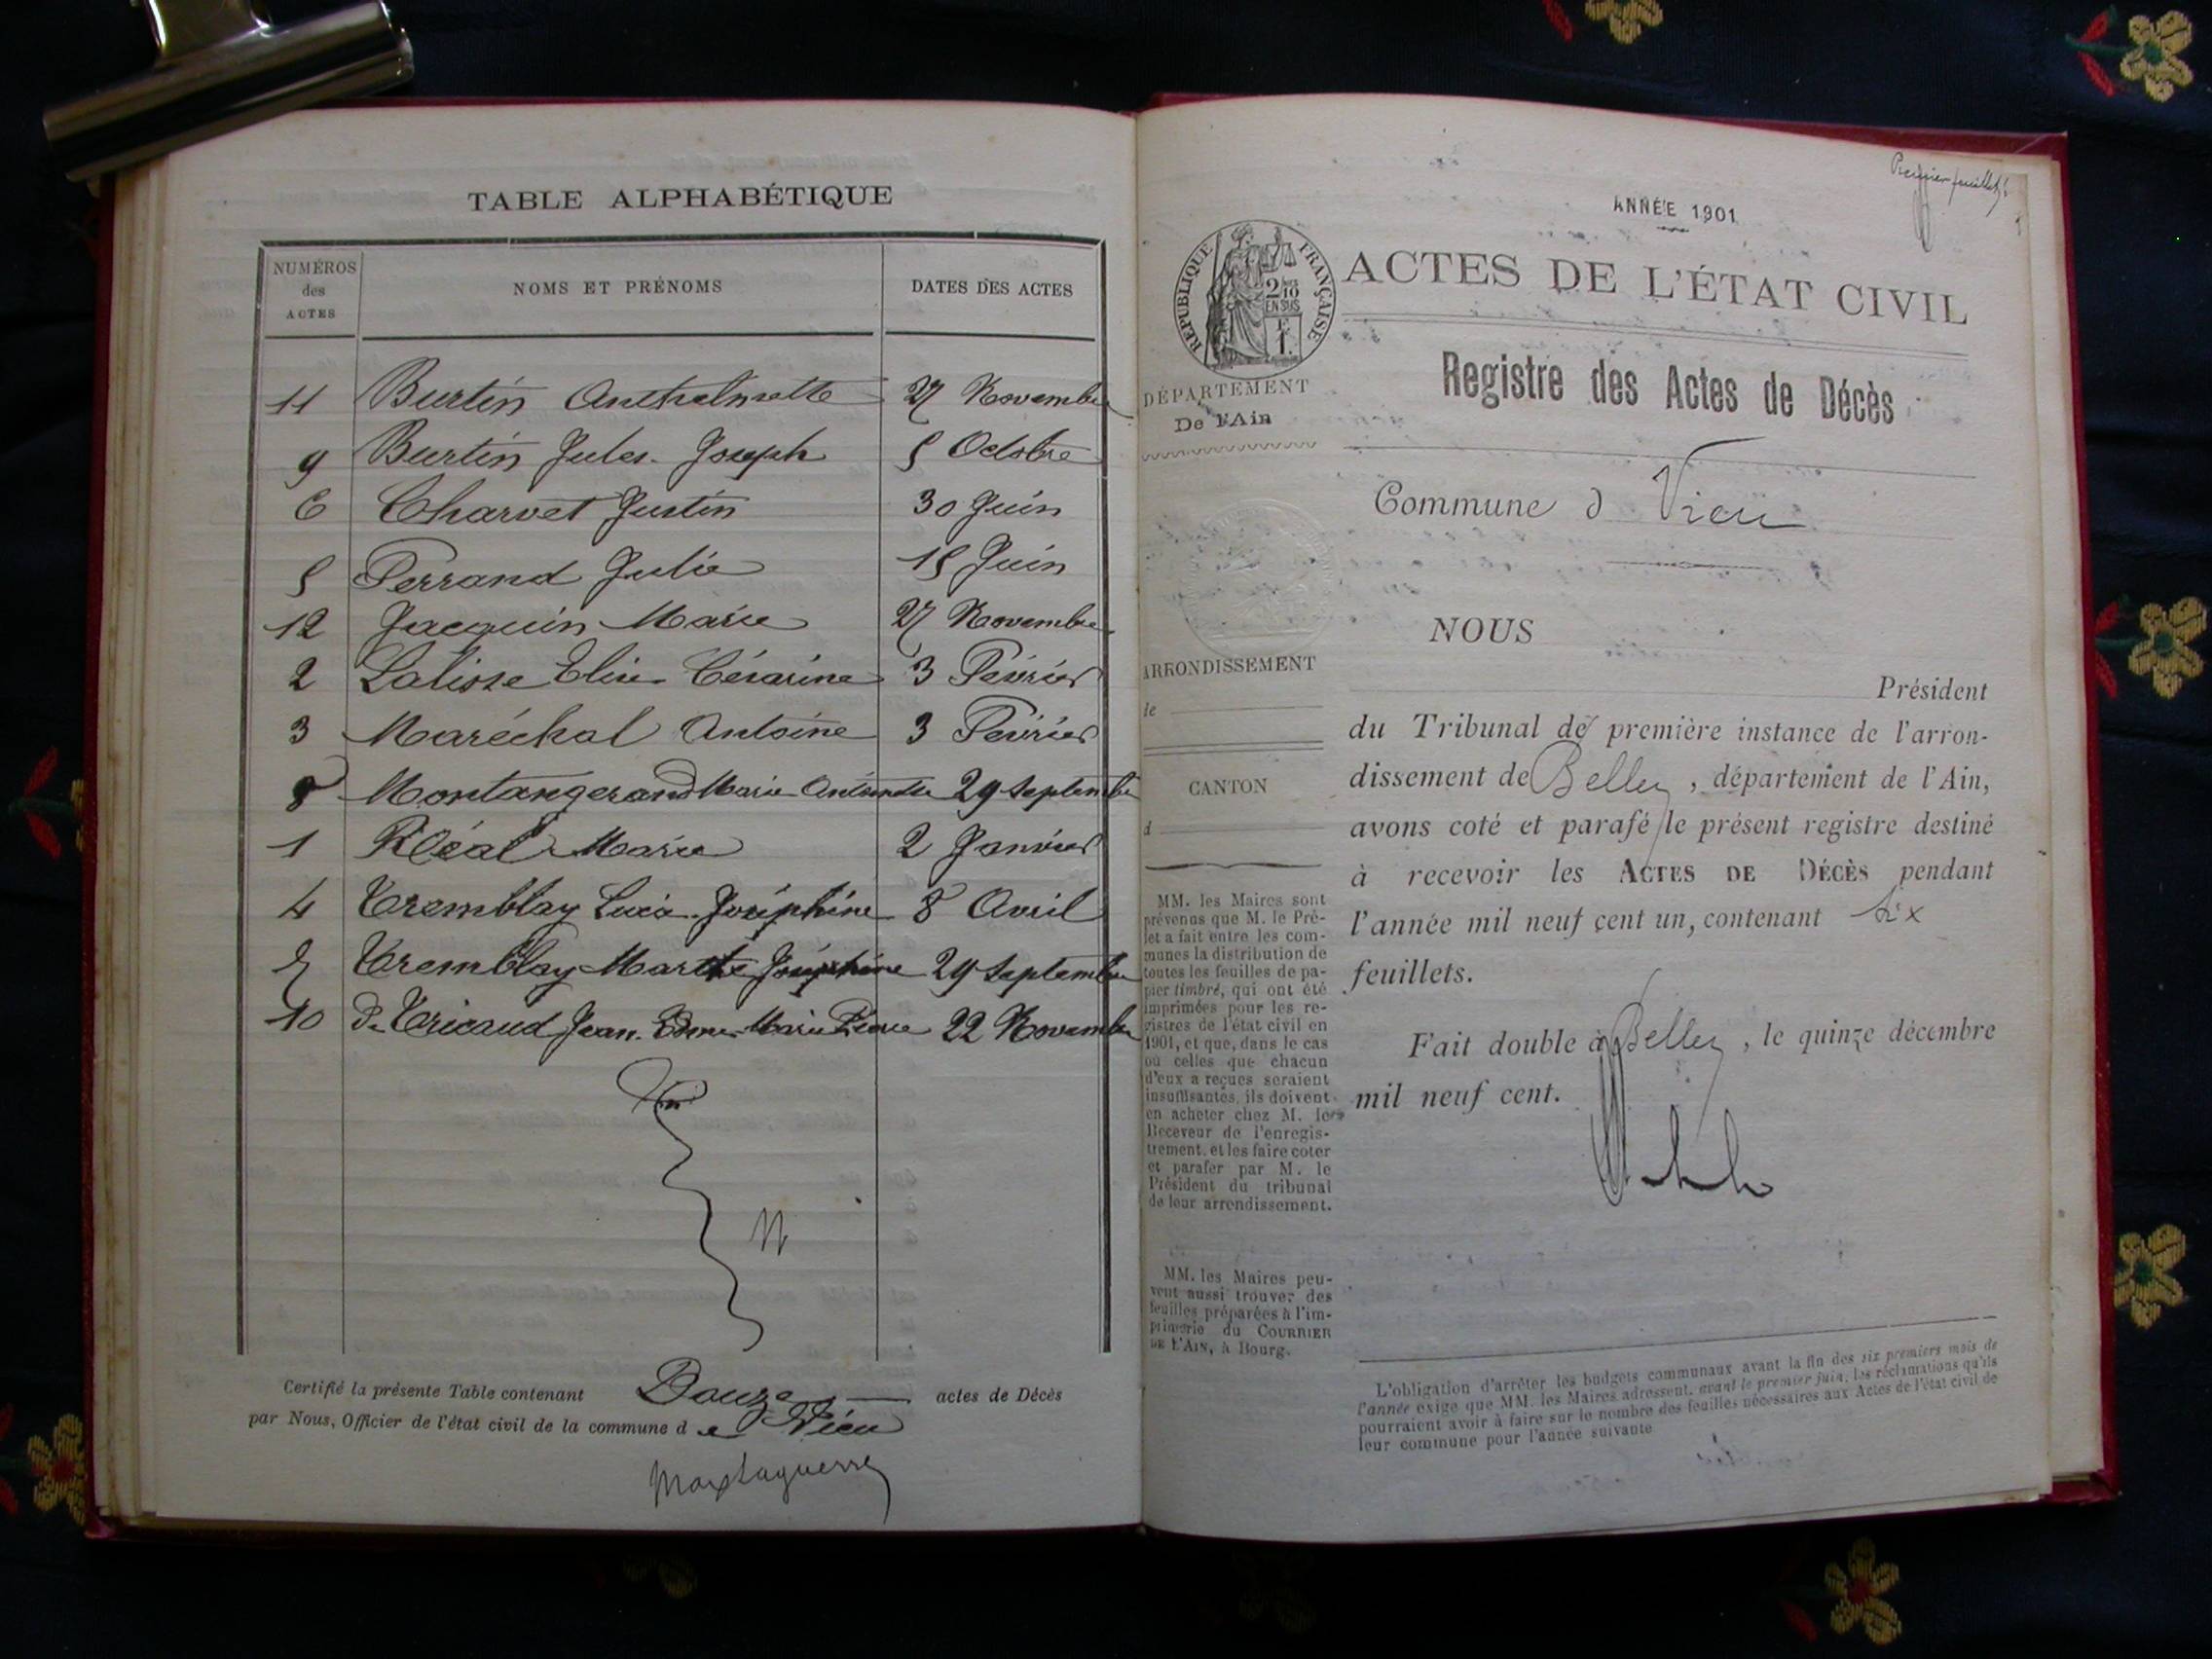 TABLE ALPHABÉTIQUE
NUMÉROS
des
ACTES
NOMS ET PRÉNOMS
DATES DES ACTES
11 Burtin Anthelmette 27 Novembre
9 Burtin Jules Joseph 5 Octobre
6 Charvet Justin 30 Juin
5 Ferrand Julie 15 Juin
12 Jacquin Marie 27 Novembre
2 Lalisse Césarine 3 Février
3 Maréchal Antoine 3 Février
8 Montangerand Marie Antoinette 29 Septembre
1 Réal Marie 2 Janvier
4 Tremblay Joséphine 8 Avril
7 Tremblay Marthe Joséphine 29 Septembre
10 de Tricaud Jean Marie Pierre 22 Novembre
Certifié la présente Table contenant Douze actes de Décès
par Nous, Officier de l'état civil de la commune d e Vieu
Premier feuillet
ANNÉE 1901
RÉPUBLIQUE FRANÇAISE
2/10
EN SUS
1 F.
ACTES DE L'ÉTAT CIVIL
Registre des Actes de Décès
DÉPARTEMENT
De l'Ain
Commune d Vieu
NOUS
ARRONDISSEMENT
de
CANTON
d
Président
du Tribunal de première instance de l'arron-
dissement de Belley, département de l'Ain,
avons coté et parafé le présent registre destiné
à recevoir les ACTES DE DÉCÈS pendant
l'année mil neuf cent un, contenant six
feuillets.
Fait double à Belley, le quinze décembre
mil neuf cent.
MM. les Maires sont
prévenus que M. le Pré-
fet a fait entre les com-
munes la distribution de
toutes les feuilles de pa-
pier timbré, qui ont été
imprimées pour les re-
gistres de l'état civil en
1901, et que, dans le cas
où celles que chacun
d'eux a reçues seraient
insuffisantes, ils doivent
en acheter chez M. le
Receveur de l'enregis-
trement, et les faire coter
et parafer par M. le
Président du tribunal
de leur arrondissement.
MM. les Maires peu-
vent aussi trouver des
feuilles préparées à l'im-
primerie du COURRIER
DE L'AIN, à Bourg.
L'obligation d'arrêter les budgets communaux avant la fin des six premiers mois de
l'année exige que MM. les Maires adressent, avant le premier juin, les réclamations qu'ils
pourraient avoir à faire sur le nombre des feuilles nécessaires aux Actes de l'état civil de
leur commune pour l'année suivante